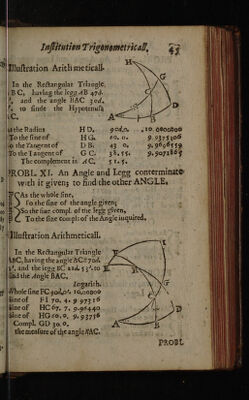 Institution Trigonometricall. 45
Illustration Arithmeticall.
In the Rectangular Triangle
ABC, having the legg AB 47d.
and the angle BAC 30d.
to finde the Hypotenuse
AC.
As the Radius HD. 90d.0. 10.0000000
To the sine of HG. 60.0. 9.9375306
So the Tangent of DB. 43 0.
To the Tangent of GC. 38.55.
The complement is AC. 51.5.
PROBL. XI. An Angle and Legg conterminate
with it given; to find the other ANGLE.
As the whole sine,
To the sine of the angle given;
So the sine compl. of the legg given,
To the sine compl. of the Angle inquired.
Illustration Arithmeticall.
In the Rectangular Triangle
ABC, having the angle ACB 70d.
and the legg BC 22d. 53'. to
find the Angle BAC.
Logarith.
Whole sine FC 90d.0'. 10.00000
Sine of FI 70. 4. 9 97316
Sine of HC 67. 7. 9.96440
Sine of HG 60.0. 9.93756
Compl. GD 30 0.
the measure of the angle BAC.
PROBL